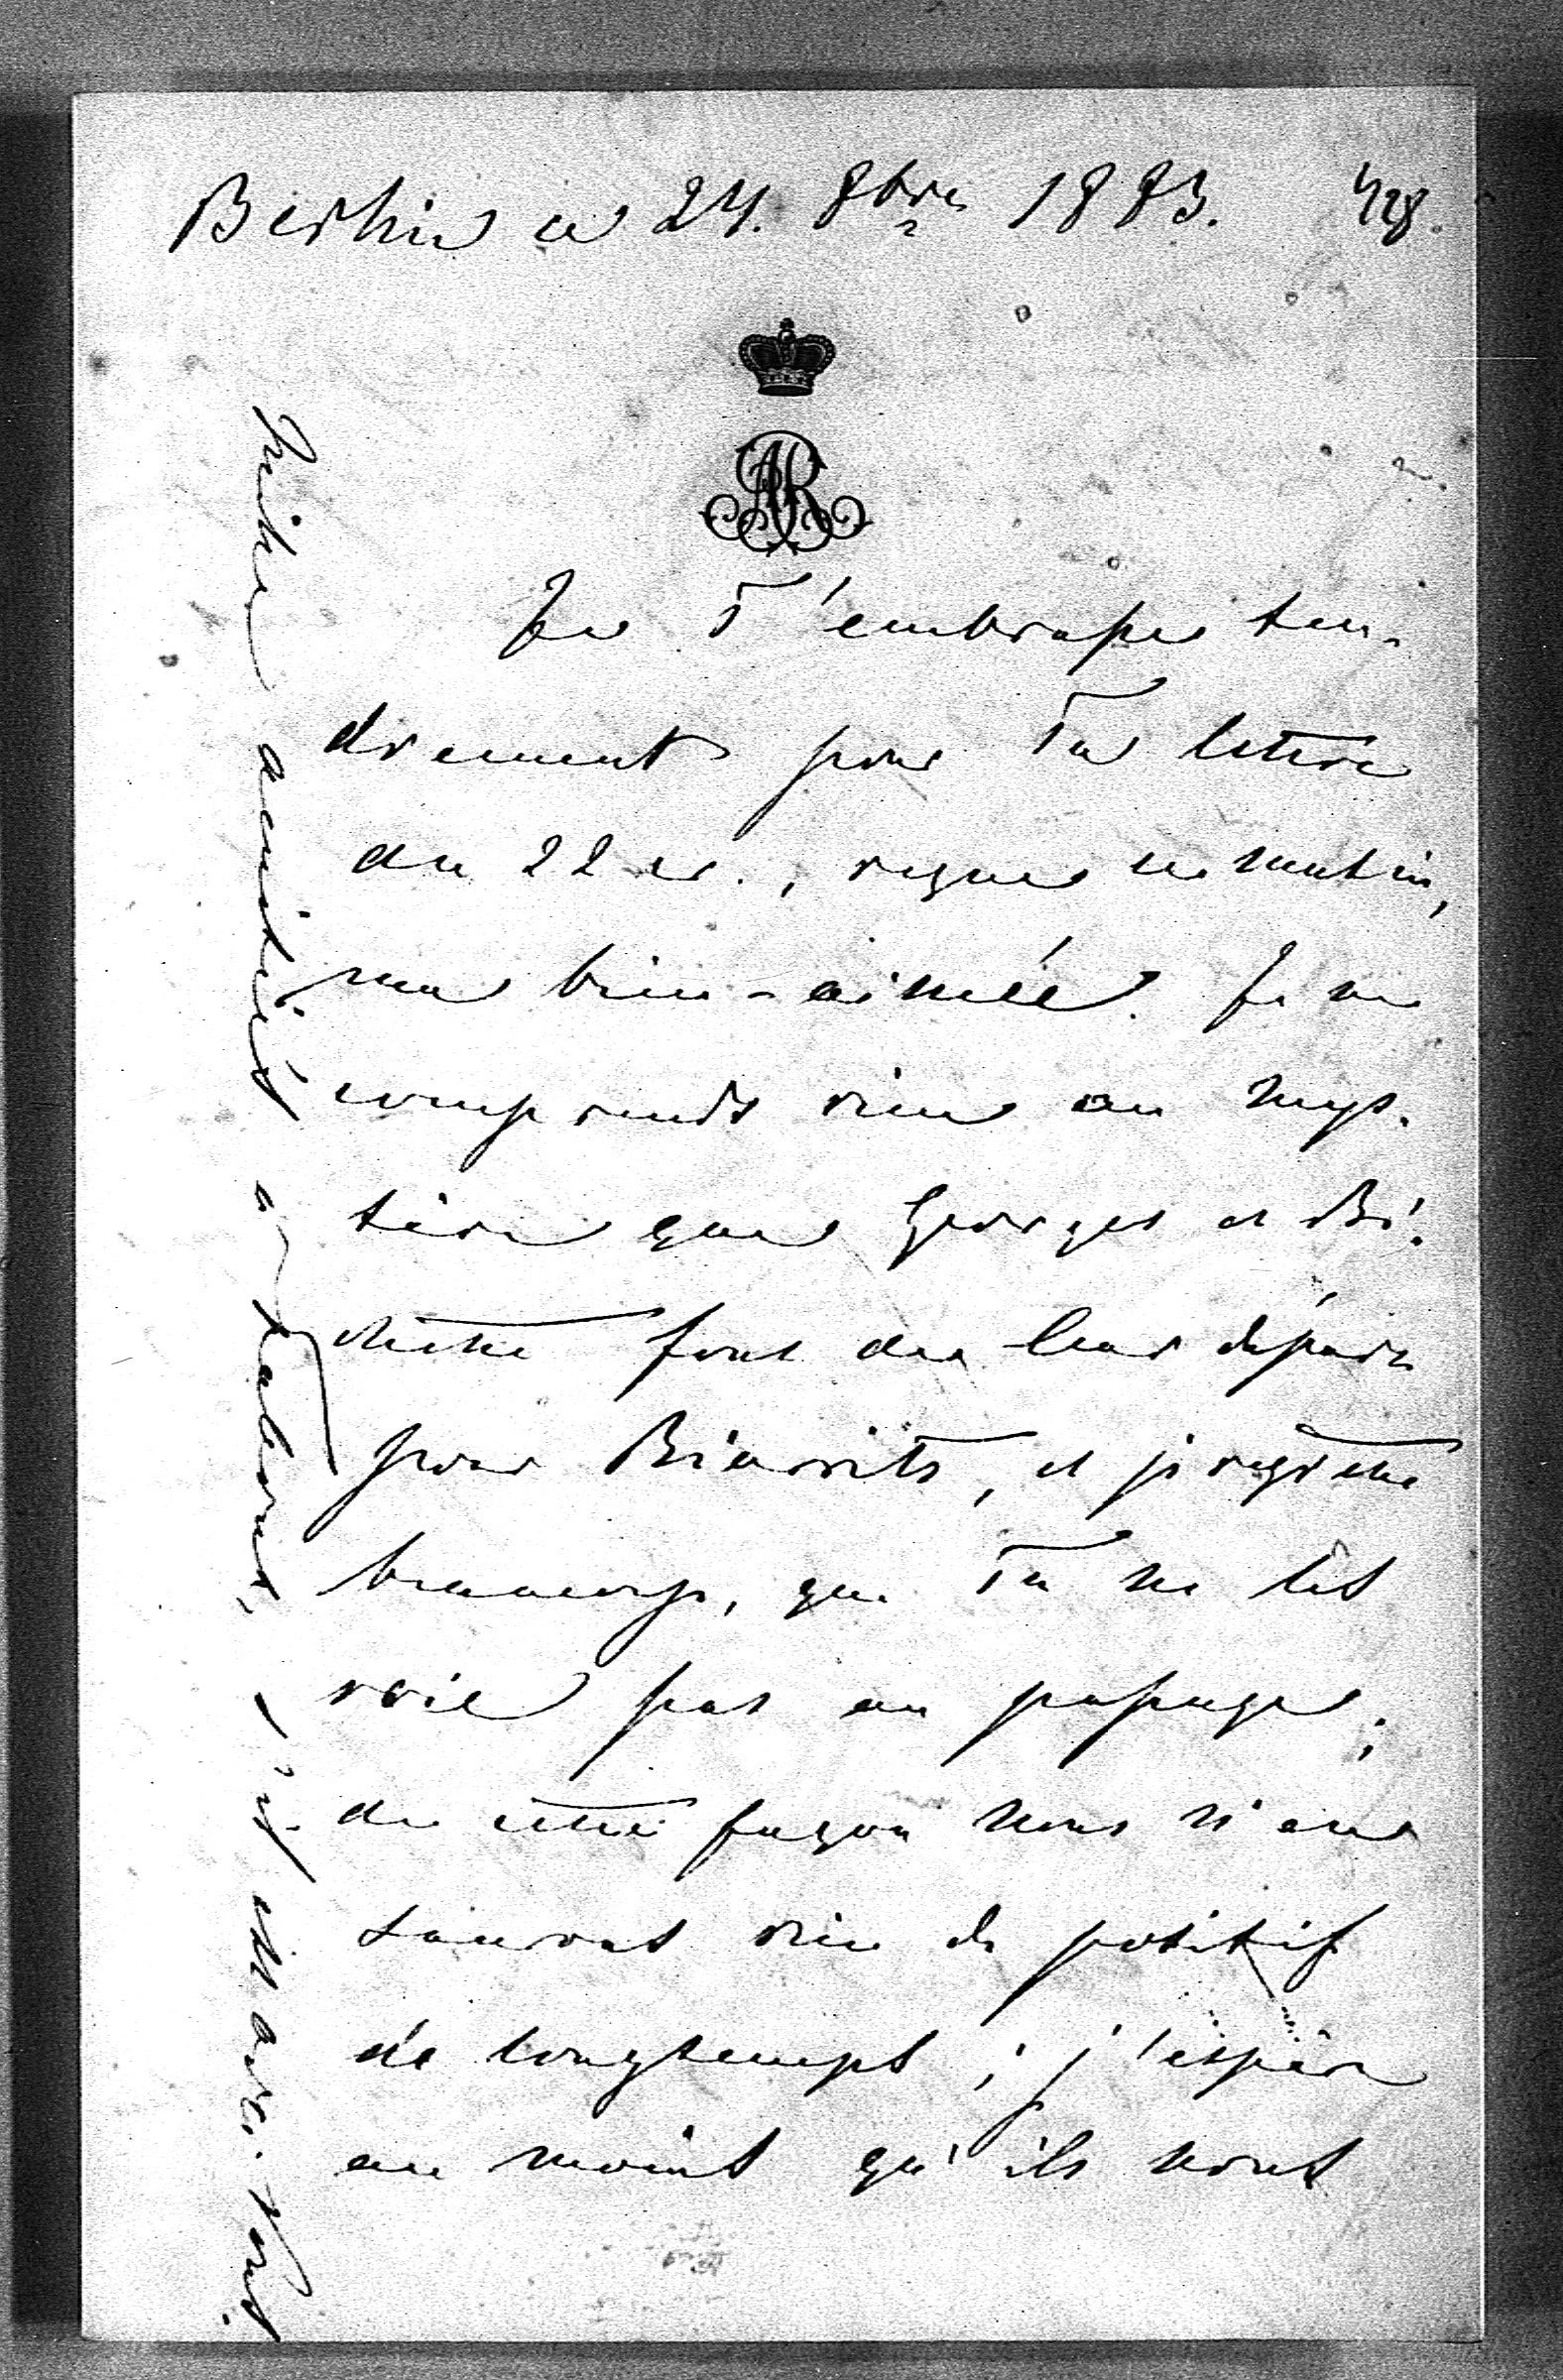 Berlin ce 24. 8bre 1883. 428.
AR
Je T'embrasse ten-
drement pour Ta lettre
du 22 cr., reçue ce matin,
ma bien-aimée. Je ne
comprends rien au mys-
tère que Georges et Bi-
chette font de leur départ
pour Biarrits, et je regrette
beaucoup, que Tu ne les
voie pas au passage;
de cette façon nous n'en
saurons rien de positif
de longtemps; j'espère
au moins qu'ils nous
mille amitiés a